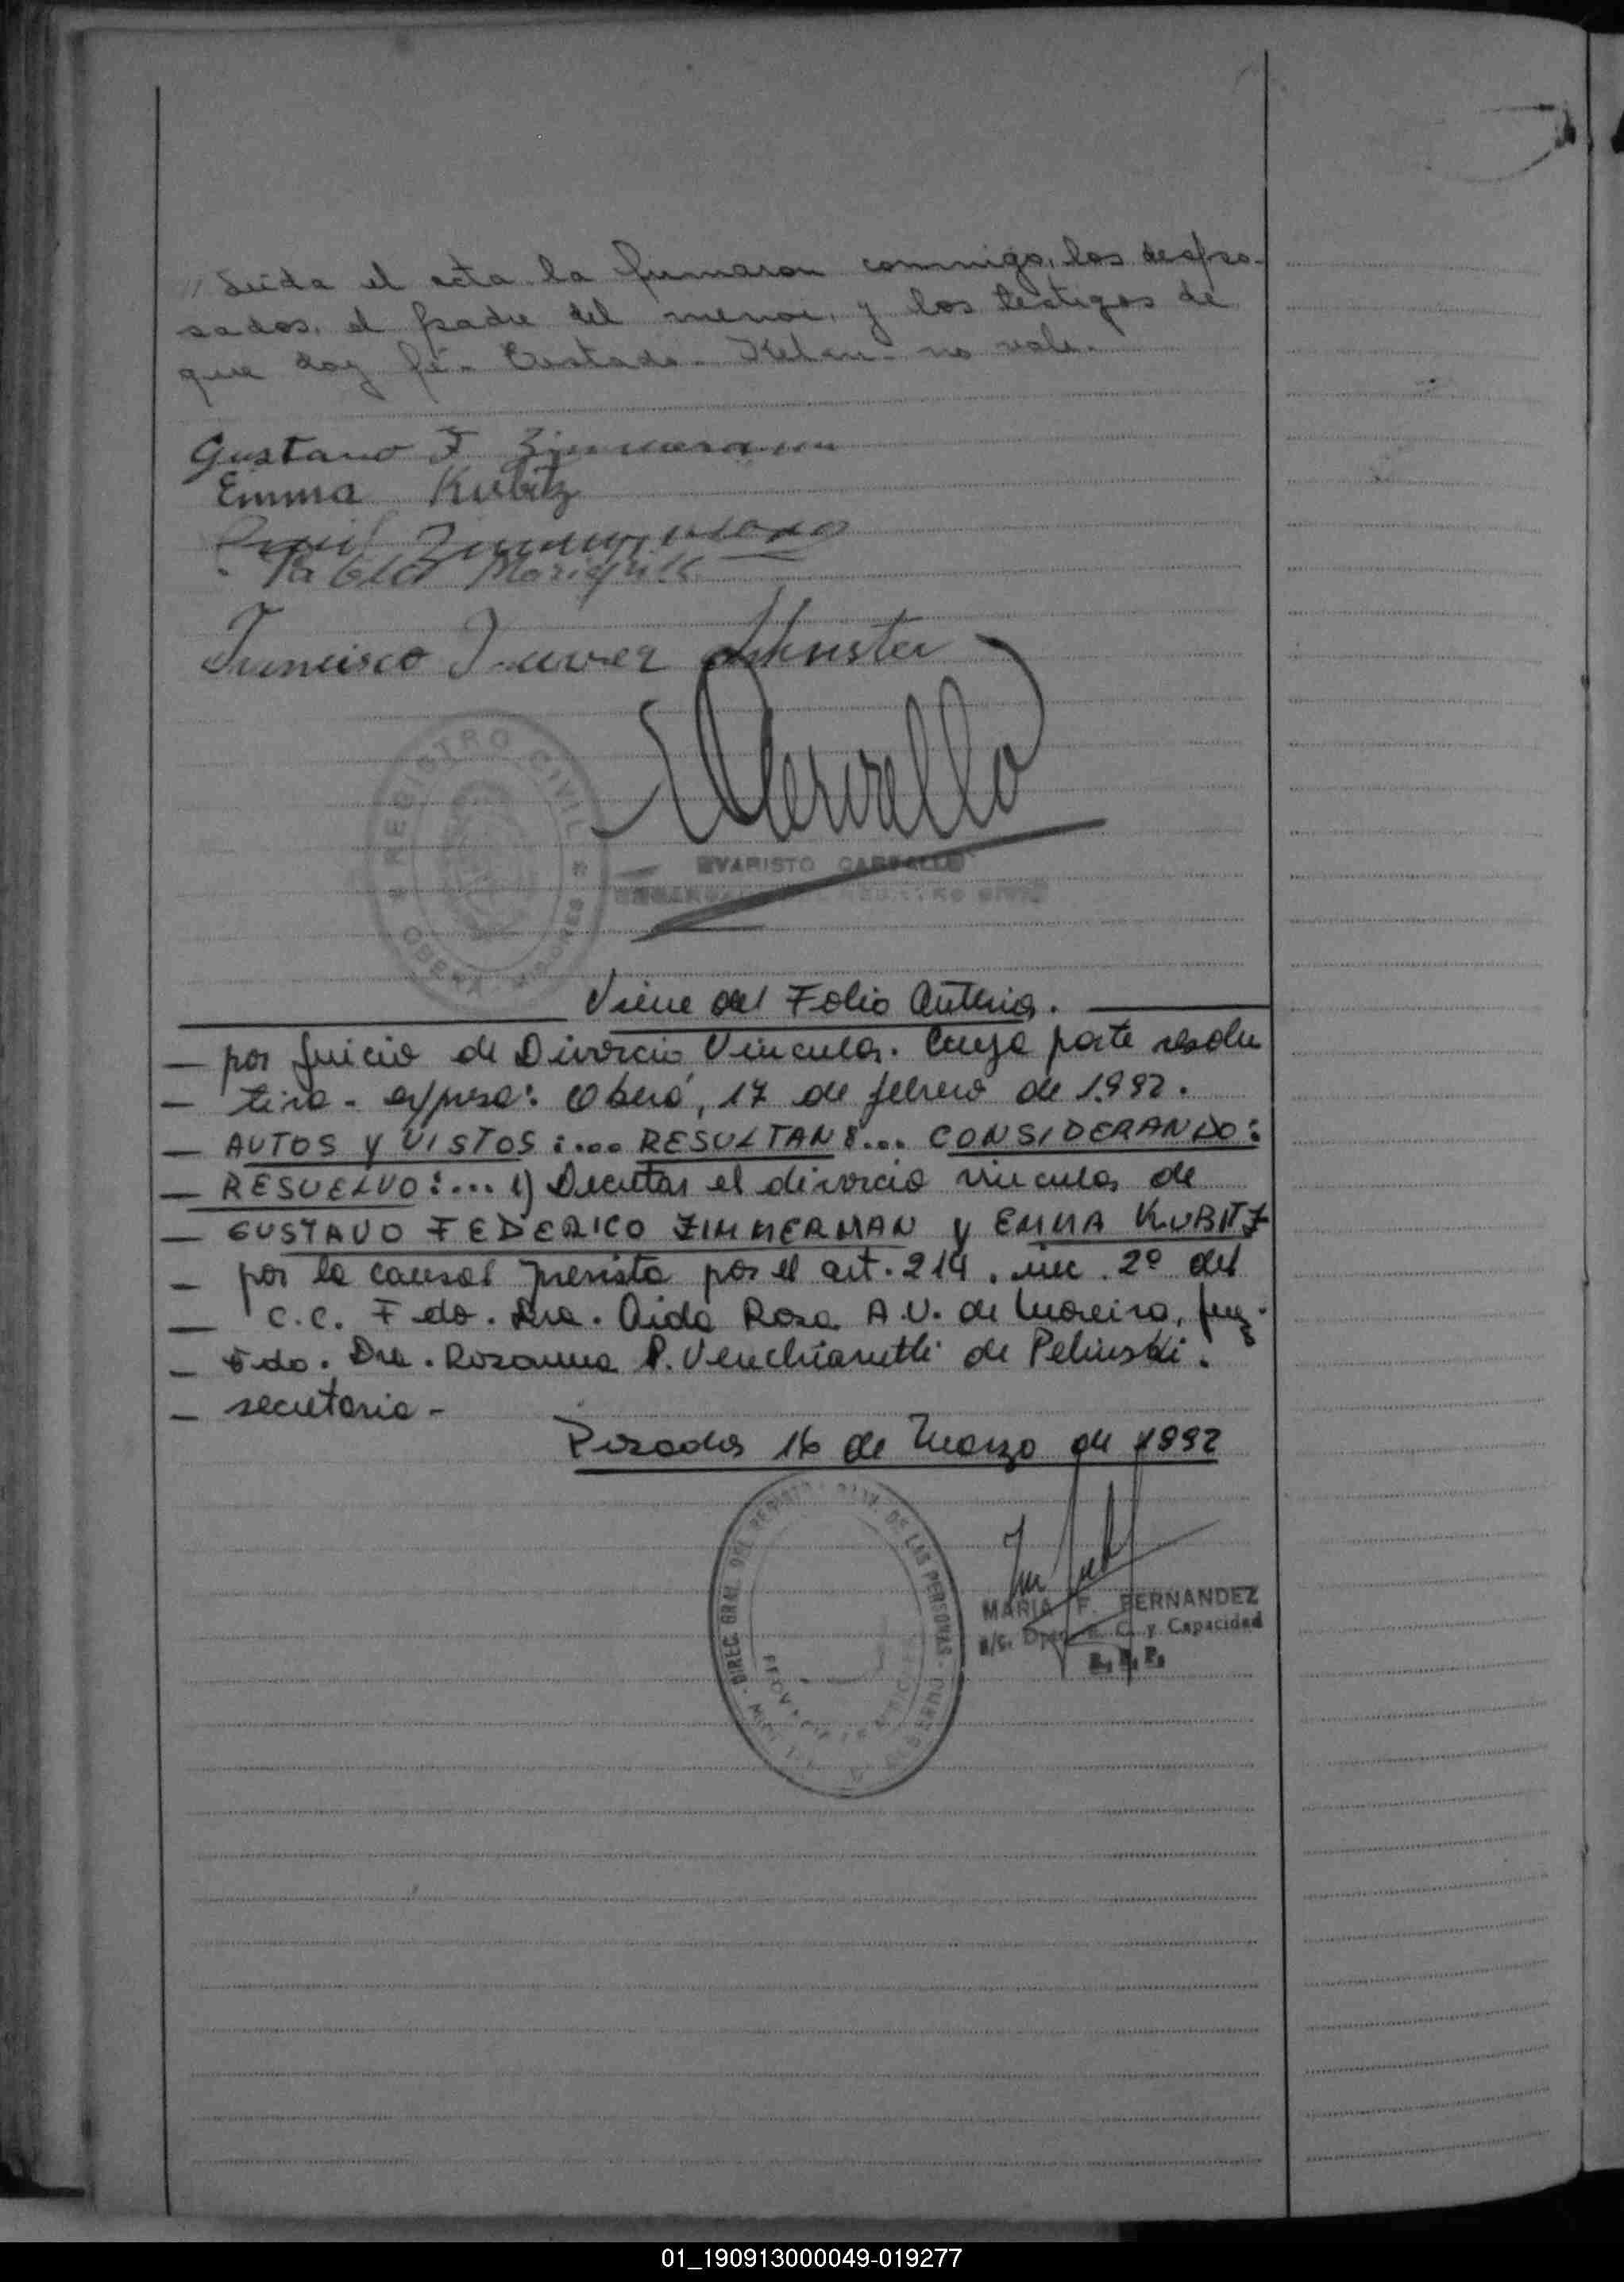 // Leida el acta la firmaron conmigo, los despo-
sados, el padre del menor, y los testigos de
que doy fé.- Testado - no vale.-
Gustavo F Zimmermann
Emma Kubitz
Zimmermann
Pablo
Francisco Shuster
REGISTRO CIVIL
OBERA MISIONES
EVARISTO CARVALLO
ENCARGADO DEL REGISTRO CIVIL
Viene del Folio Anterior.
— por Juicio de Divorcio Vincular. Cuya parte resolu
— tiva - expresa: Oberá, 17 de febrero de 1.992.
— AUTOS Y VISTOS:.... RESULTAN:... CONSIDERANDO:
— RESUELVO:... 1) Decretar el divorcio vincular de
— GUSTAVO FEDERICO ZIMMERMAN y EMMA KUBITZ
— por la causal prevista por el art. 214. inc. 2º del
— C.C. Fdo. Dra. Aida Rosa A.V. de Moreira, Juez.
— Fdo. Dra. Rosanna P. Venchiarutti de Pelinski.
— secretaria -
Posadas 16 de Marzo de 1992
DIREC. GRAL. DEL REGISTRO PROV. DE LAS PERSONAS
PROVINCIA DE MISIONES
MARIA F. FERNANDEZ
a/c. Dpto. E. C. y Capacidad
R. P. P.
01_190913000049-019277